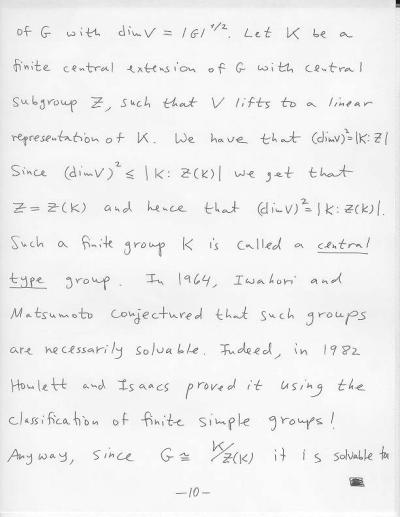 of G with dimV = |G|^1/2. Let K be a
finite central extension of G with central
subgroup Z, such that V lifts to a linear
representation of K. We have that (dimV)²=|K:Z|
Since (dimV)² ≤ |K: Z(K)| we get that
Z = Z(K) and hence that (dimV)²=|K:Z(K)|.
Such a finite group K is called a central
type group. In 1964, Iwahori and
Matsumoto conjectured that such groups
are necessarily solvable. Indeed, in 1982
Howlett and Isaacs proved it using the
classification of finite simple groups!
Anyway, since G ≅ K/Z(K) it is solvable too
—10—